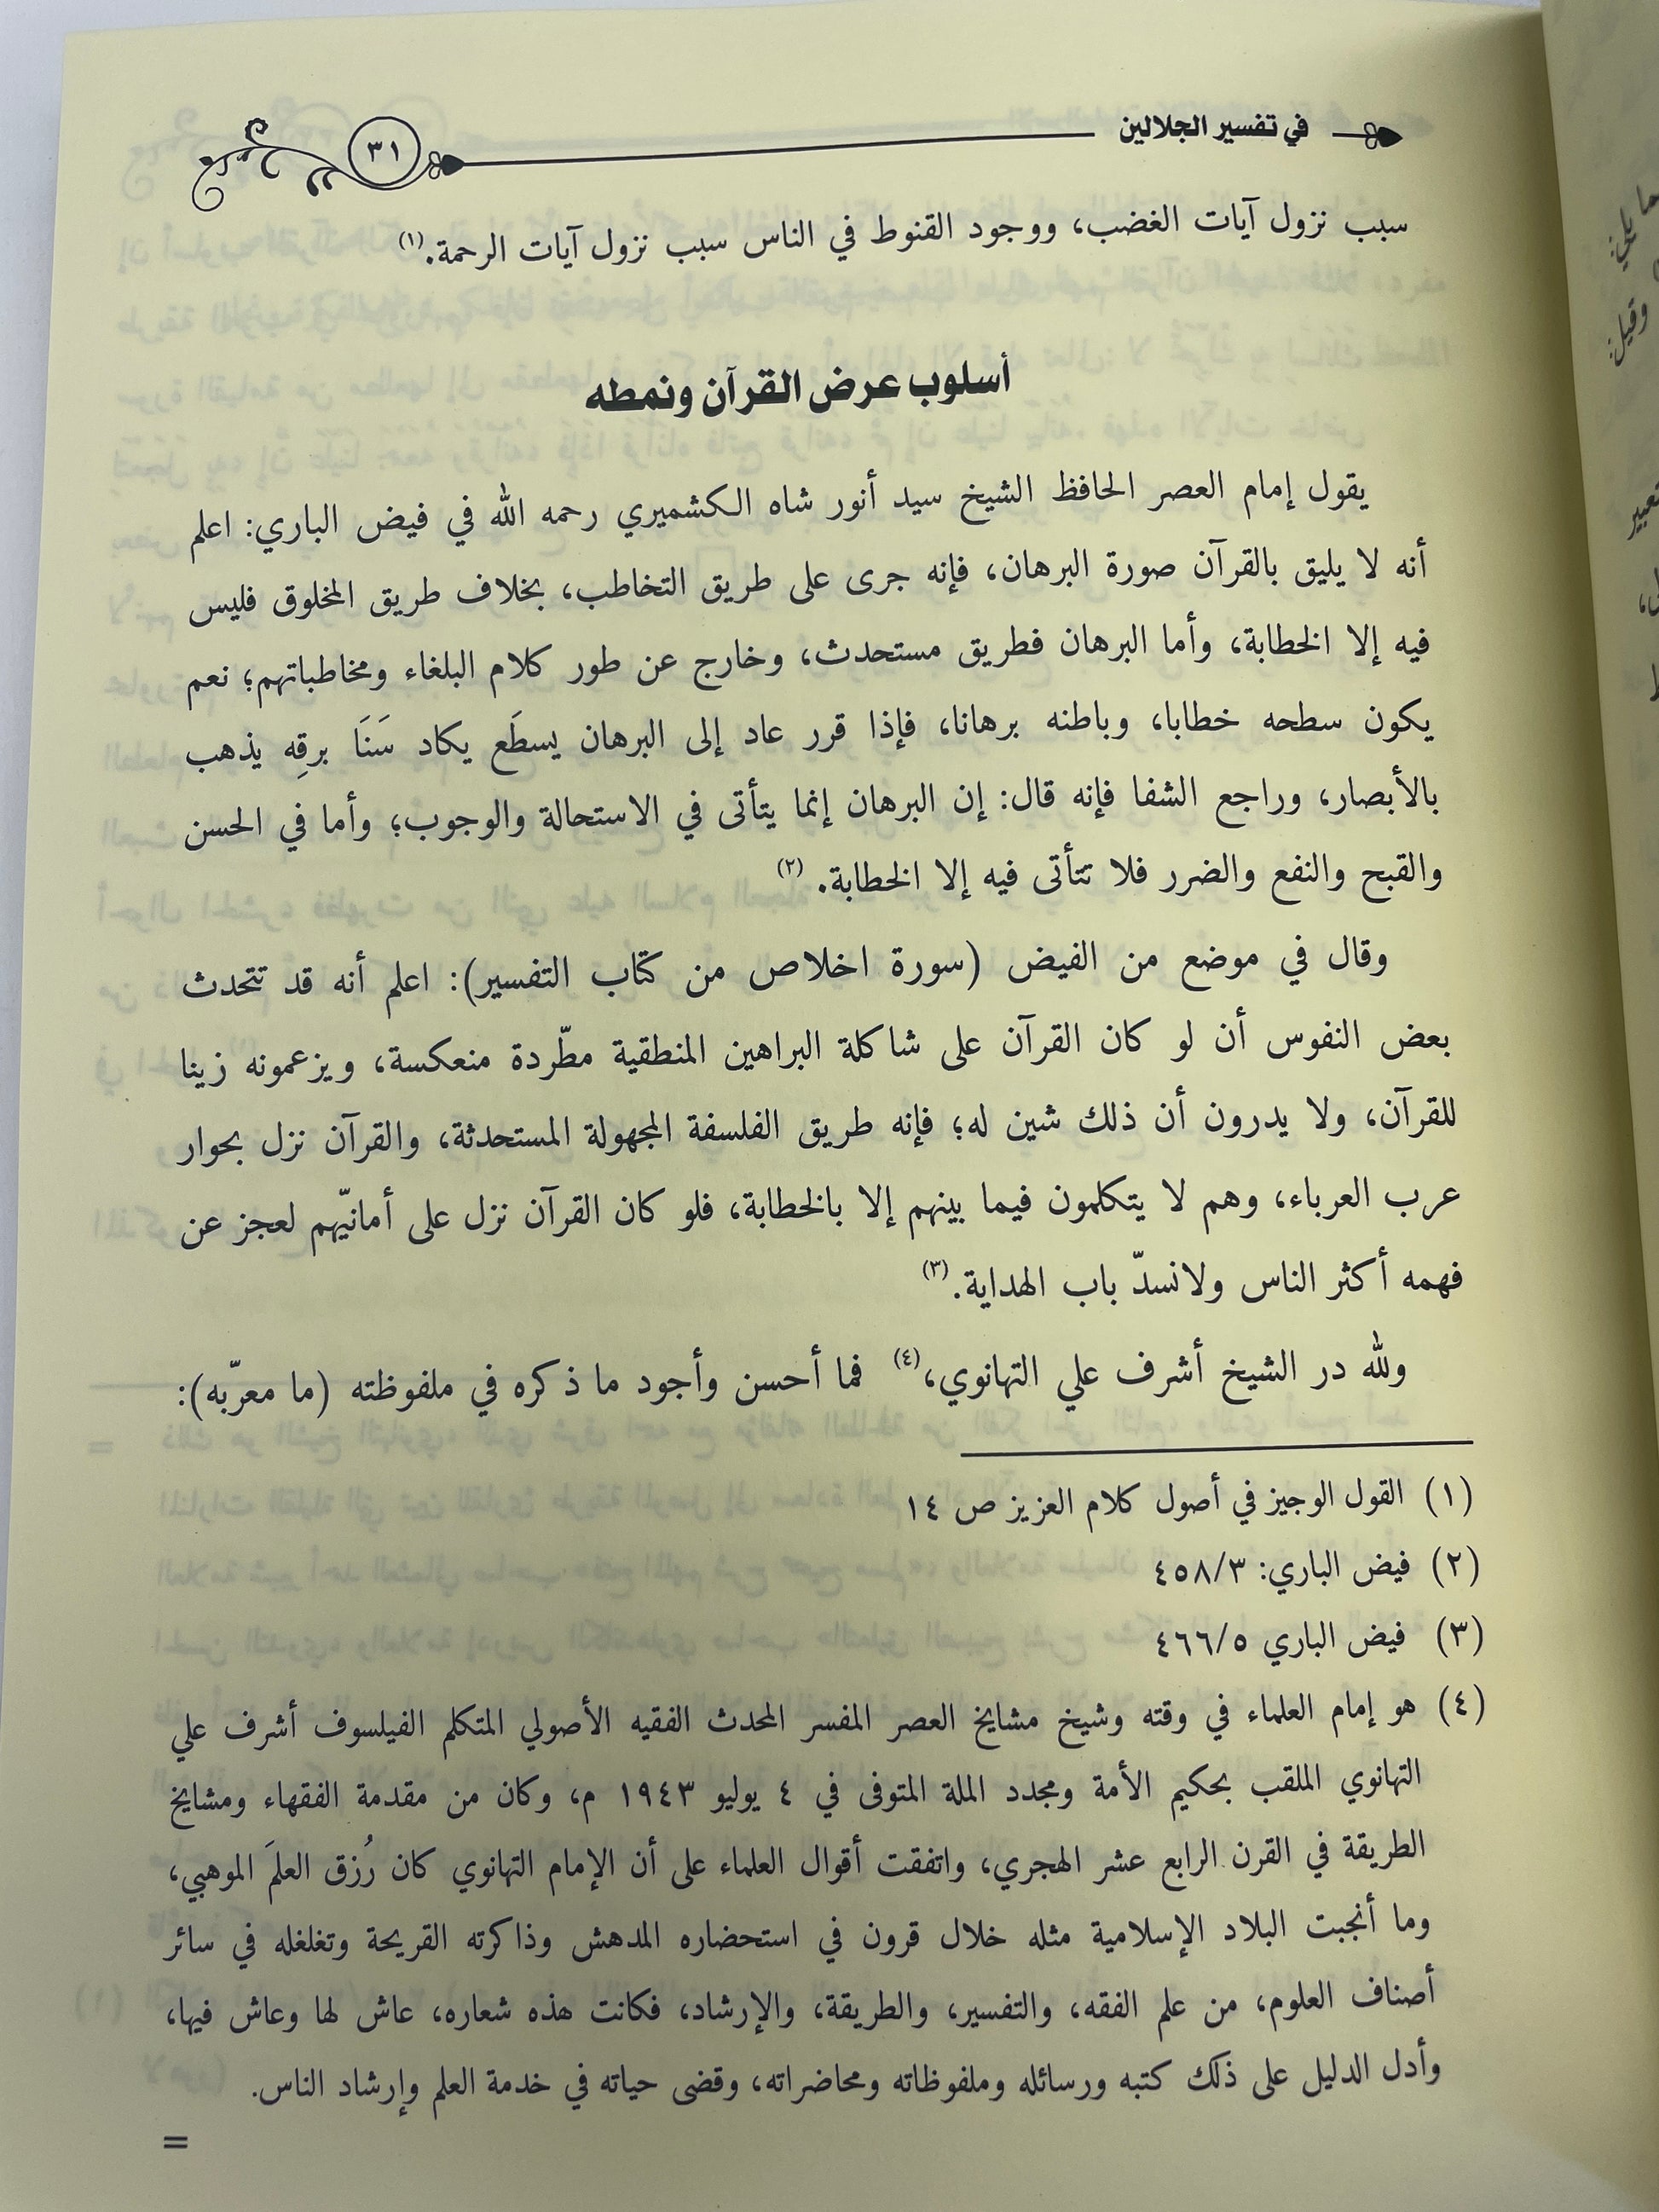 في تفسير الجلالين
٣١
سبب نزول آيات الغضب، ووجود القنوط في الناس سبب نزول آيات الرحمة.(١)
أسلوب عرض القرآن ونمطه
يقول إمام العصر الحافظ الشيخ سيد أنور شاه الكشميري رحمه الله في فيض الباري: اعلم
أنه لا يليق بالقرآن صورة البرهان، فإنه جرى على طريق التخاطب، بخلاف طريق المخلوق فليس
فيه إلا الخطابة، وأما البرهان فطريق مستحدث، وخارج عن طور كلام البلغاء ومخاطباتهم؛ نعم
يكون سطحه خطابا، وباطنه برهانا، فإذا قرر عاد إلى البرهان يسطَع يكاد سَنَا برقِه يذهب
بالأبصار، وراجع الشفا فإنه قال: إن البرهان إنما يتأتى في الاستحالة والوجوب؛ وأما في الحسن
والقبح والنفع والضرر فلا تتأتى فيه إلا الخطابة. (٢)
وقال في موضع من الفيض (سورة اخلاص من كتاب التفسير): اعلم أنه قد تتحدث
بعض النفوس أن لو كان القرآن على شاكلة البراهين المنطقية مطّردة منعكسة، ويزعمونه زينا
للقرآن، ولا يدرون أن ذلك شين له؛ فإنه طريق الفلسفة المجهولة المستحدثة، والقرآن نزل بحوار
عرب العرباء، وهم لا يتكلمون فيما بينهم إلا بالخطابة، فلو كان القرآن نزل على أمانيّهم لعجز عن
فهمه أكثر الناس ولانسدّ باب الهداية.(٣)
ولله در الشيخ أشرف علي التهانوي،(٤) فما أحسن وأجود ما ذكره في ملفوظته (ما معرّبه):
(١) القول الوجيز في أصول كلام العزيز ص ١٤
(٢) فيض الباري: ٤٥٨/٣
(٣) فيض الباري ٤٦٦/٥
(٤) هو إمام العلماء في وقته وشيخ مشايخ العصر المفسر المحدث الفقيه الأصولي المتكلم الفيلسوف أشرف علي
التهانوي الملقب بحكيم الأمة ومجدد الملة المتوفى في ٤ يوليو ١٩٤٣ م، وكان من مقدمة الفقهاء ومشايخ
الطريقة في القرن الرابع عشر الهجري، واتفقت أقوال العلماء على أن الإمام التهانوي كان رُزق العلمَ الموهبي،
وما أنجبت البلاد الإسلامية مثله خلال قرون في استحضاره المدهش وذاكرته القريحة وتغلغله في سائر
أصناف العلوم، من علم الفقه، والتفسير، والطريقة، والإرشاد، فكانت هذه شعاره، عاش لها وعاش فيها،
وأدل الدليل على ذلك كتبه ورسائله وملفوظاته ومحاضراته، وقضى حياته في خدمة العلم وإرشاد الناس.
=
ما يلي:
وقيل: